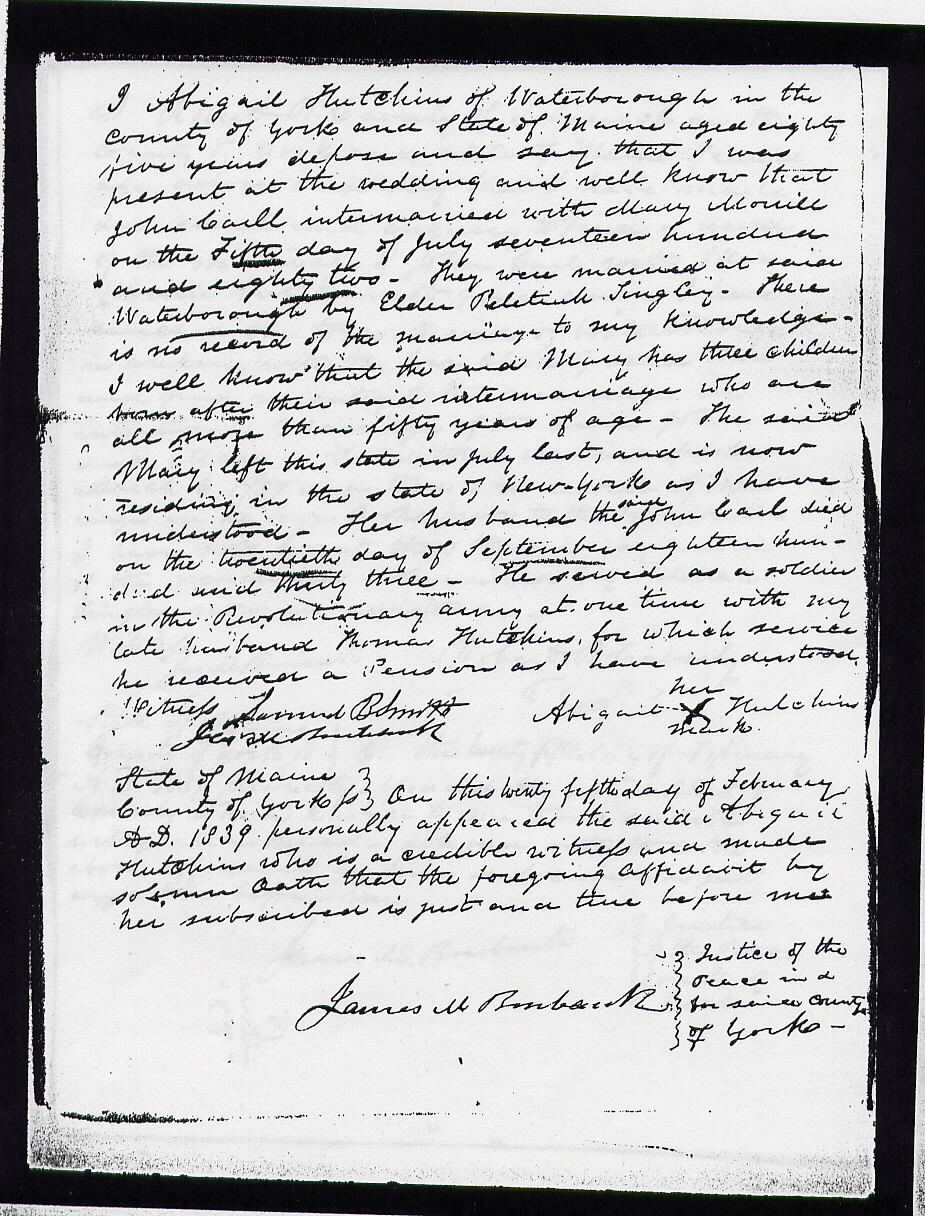 I Abigail Hutchins of Waterborough in the
county of York and State of Maine aged eighty
five years depose and say that I was
present at the wedding and well know that
John Caill intermarried with Mary Morrill
on the Fifth day of July seventeen hundred
and eighty two - They were married at said
Waterborough by Elder Peletiah Tingley - There
is no record of the marriage to my knowledge -
I well know that the said Mary has three children
born after their said intermarriage who are
all more than fifty years of age - The said
Mary left this state in July last, and is now
residing in the state of New-York as I have
understood - Her husband the said John Carl died
on the twentieth day of September eighteen hun-
dred and thirty three - He served as a soldier
in the Revolutionary army at one time with my
late husband Thomas Hutchins, for which service
he received a Pension as I have understood.
Witness Samuel B Smith
her
Abigail X Hutchins
mark.
State of Maine
County of York ss On this twenty fifth day of February
A.D. 1839 personally appeared the said Abigail
Hutchins who is a credible witness and made
solemn Oath that the foregoing affidavit by
her subscribed is just and true before me
Justice of the
Peace in &
for said County
of York -
James M Burbank